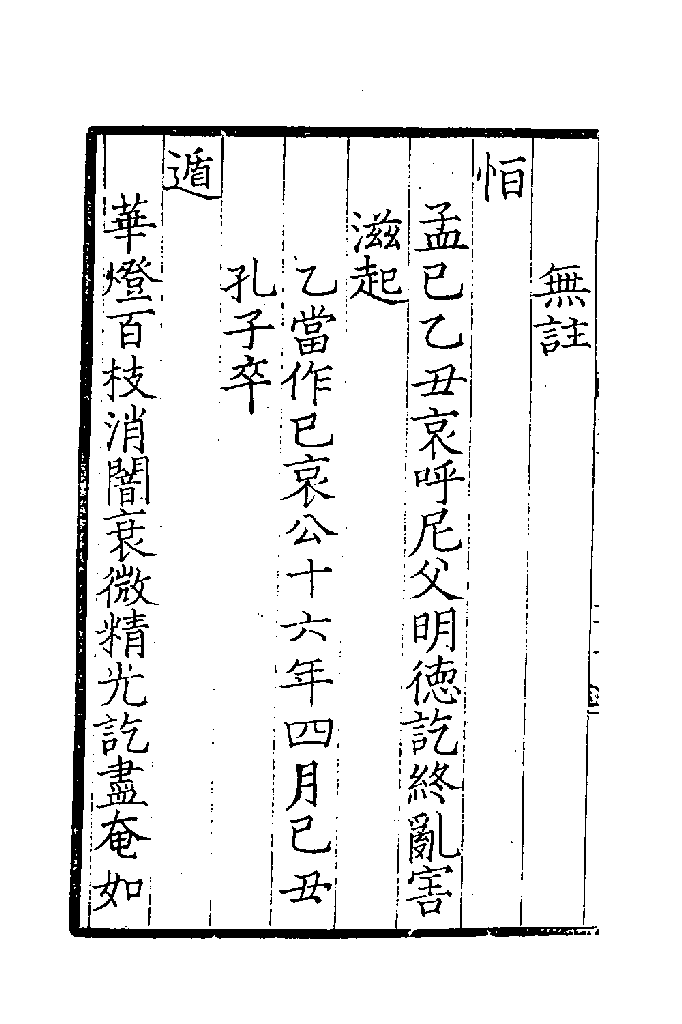 無註
恒
孟已乙丑哀呼尼父明徳訖終亂害
滋起
乙當作已哀公十六年四月己丑
孔子卒
遁
華燈百枝消闇衰微精光訖盡奄如